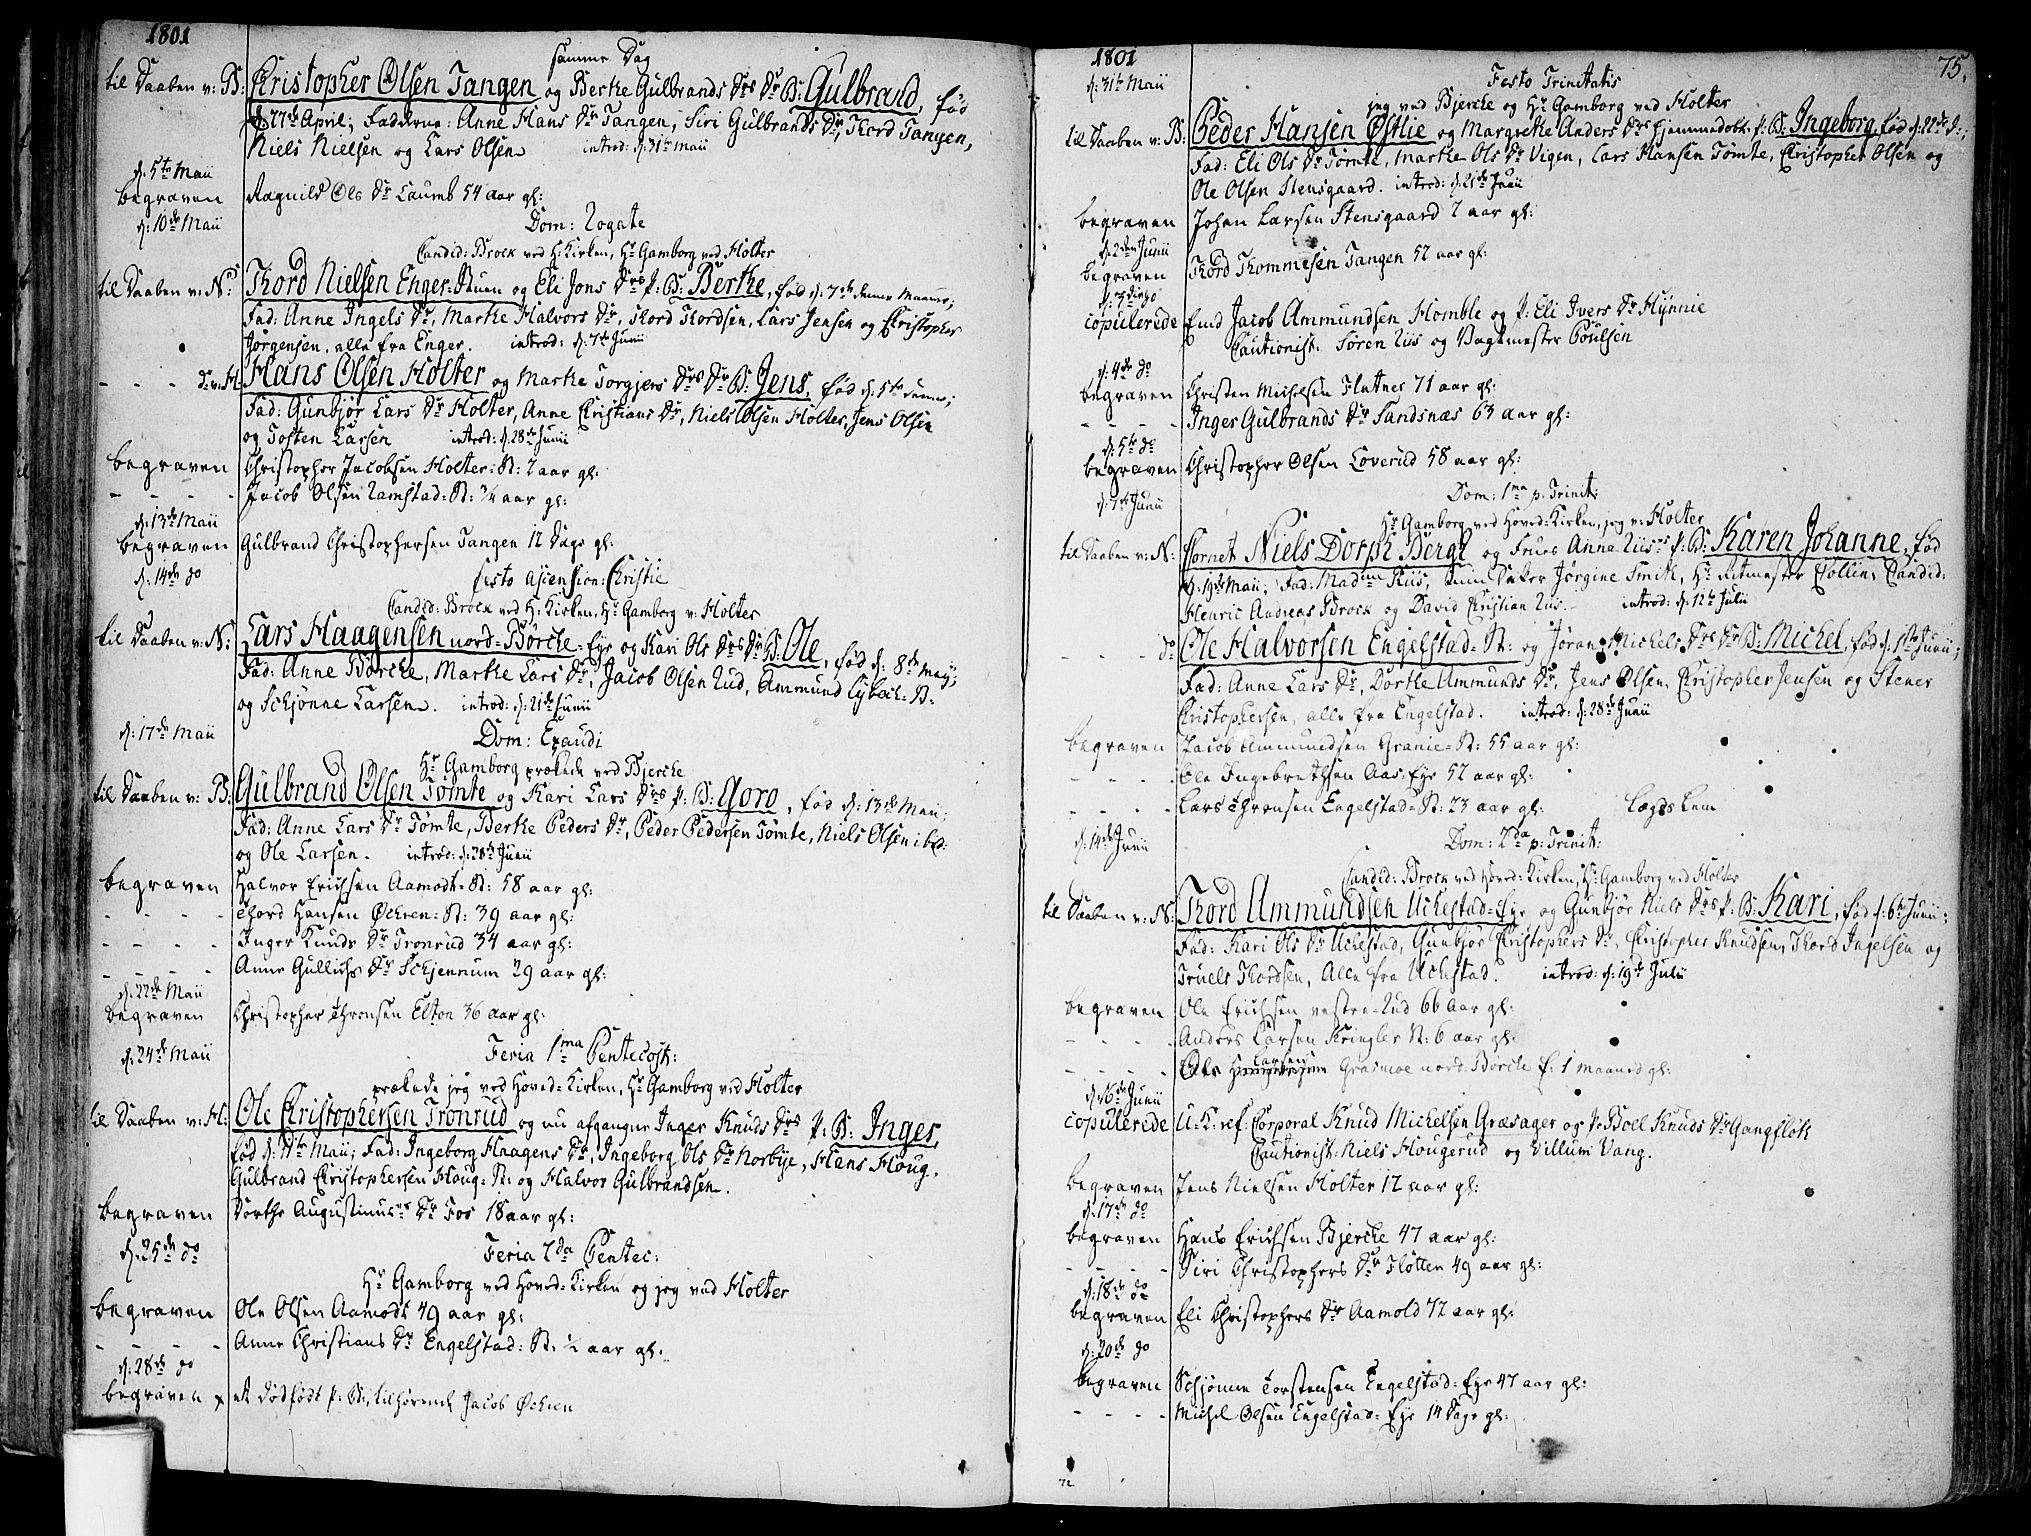 1801
samme Dag
til Daaben v: B: Christopher Olsen Tangen og Berthe Gulbrands Drs Dr B: Gulbrand, fød
d: 27de April; Fadderne: Anne Hans Dr Tangen, Siri Gulbrands Dr, Thord Tangen,
Niels Nielsen og Lars Olsen introd: d: 31te Maii
d: 5te Maii
begraven Ragnild Ols Dr Laumb 54 aar gl:
d: 10de Maii
Dom: Rogate
Candid: Brock ved H: Kirken, Hr Gamborg ved Holter
til Daaben v: N: Thord Nielsen Enger-Stuen og Eli Jons Drs P: B: Berthe, fød d: 7de denne Maaned;
Fad: Anne Ingels Dr, Marthe Halvors Dr, Thord Thordsen, Lars Jensen og Christopher
Jørgensen, alle fra Enger. introd: d: 7de Junii
- - - do v: H: Hans Olsen Holter og Marthe Torgjers Drs Dr B: Jens, fød d: 5te hujus;
Fad: Gunbjør Lars Dr Holter, Anne Christians Dr, Niels Olsen Holter, Jens Olsen
og Tosten Larsen introd: d: 28de Junii
begraven Christopher Jacobsen Holter-St: 2 aar gl:
- - - - Jacob Olsen Ramstad-St: ¾ aar gl:
d: 13de Maii
begraven Gulbrand Christophersen Tangen 12 Dage gl:
d: 14de do
Festo Ascension: Christie
Candid: Brock ved H: Kirken, Hr Gamborg v: Holter
til Daaben v: N: Lars Haagensen nord-Børche-Eye og Kari Ols Drs Dr B: Ole, fød d: 8de May;
Fad: Anne Børche, Marthe Lars Dr, Jacob Olsen Rud, Ammund Lybech-St:
og Schjønne Larsen. introd: d: 21de Junii
d: 17de Maii
Dom: Exaudi
Hr Gamborg prækede ved Bjercke
til Daaben v: B: Gulbrand Olsen Tømte og Kari Lars Drs P: B: Goro, fød d: 13de Maii;
Fad: Anne Lars Dr Tømte, Berthe Peders Dr, Peder Pedersen Tømte, Niels Olsen ibd:
og Ole Larsen. introd: d: 28de Junii
begraven Halvor Erichsen Aamodt-St: 58 aar gl:
- - - - Thord Hansen Øchren-St: 39 aar gl:
- - - - Inger Knuds Dr Tronrud 34 aar gl:
- - - - Anne Gullichs Dr Schjennum 29 aar gl:
d: 22de Maii
begraven Christopher Thronsen Elton 36 aar gl:
d: 24de Maii
Feria 1ma Pentecost:
prækede jeg ved Hoved-Kirken, Hr Gamborg ved Holter
til Daaben v: H: Ole Christophersen Tronrud og nu afgangne Inger Knuds Drs P: B: Inger,
fød d: 11te Maii; Fad: Ingeborg Haagens Dr, Ingeborg Ols Dr Norbye, Hans Houg,
Gulbrand Christophersen Houg-St: og Halvor Gulbrandsen.
begraven Dorthe Augustinus Dr Fos 18 aar gl:
d: 25de do
Feria 2da Pentec:
Hr Gamborg ved Hoved-Kirken og jeg ved Holter
begraven Ole Olsen Aamodt 49 aar gl:
- - - - Anne Christians Dr Engelstad-St: ½ aar gl.
d: 28de do
begraven et dødfødt P: B:, tilhørende Jacob Øchren
1801
75.
d: 31te Maii
Festo Trinitatis
jeg ved Bjercke og Hr Gamborg ved Holter
til Daaben v: B: Peder Hansen Østlie og Margrethe Anders Drs P: B: Ingeborg, fød d: 22de d:;
Fad: Eli Ols Dr Tømte, Marthe Ols Dr Vigen, Lars Hansen Tømte, Christopher Olsen og
Ole Olsen Stensgaard. introd: d: 21de Junii
begraven Johan Larsen Stensgaard 2 aar gl:
d: 2den Junii
begraven Thord Thommesen Tangen 52 aar gl:
d: 3die do
copulerede Emd Jacob Ammundsen Homble og P: Eli Ivers Dr Hynnie
Cautionist: Søren Riis og Vagtmester Poulsen
d: 4de do
begraven Christen Michelsen Flatner 71 aar gl:
- - - - Inger Gulbrands Dr Sandsnæs 63 aar gl:
d: 5te do
begraven Christopher Olsen Loverud 58 aar gl:
d: 7de Junii
Dom: 1ma p: Trinit:
Hr Gamborg ved Hoved-Kirken, jeg v: Holter
til Daaben v: N: Cornet Niels Dorph Bergh og Frues Anne Riis's P: B: Karen Johanne, fød
d: 19de Maii; Fad: Madme Riis, Jørgine Smith, Hr Ritmester Collin, Candid:
Henric Andreas Brock og David Christian Riis. introd: d: 12te Julii
- - do Ole Halvorsen Engelstad-St: og Jøran Michels Drs Dr B: Michel, fød d: 1ste Junii;
Fad: Anne Lars Dr, Dorthe Ammunds Dr, Jens Olsen, Christopher Jensen og Stener
Christophersen, alle fra Engelstad. introd: d: 28de Junii
begraven Jacob Ammundsen Granie-St: 55 aar gl:
- - - - Ole Ingebrethsen Aas-Eye 52 aar gl:
- - - - Lars Thronsen Engelstad-St: 23 aar gl: Lægds Lem
d: 14de Junii
Dom: 2da p: Trinit:
Candid: Brock ved Hoved-Kirken, Hr Gamborg ved Holter
til Daaben v: N: Thord Ammundsen Uchestad-Eye og Gunbjør Niels Drs P: B: Kari, fød d: 6te Junii;
Fad: Kari Ols Dr Uchestad, Gunbjør Christophers Dr, Christopher Knudsen, Thord Ingelsen og
Truels Thordsen, Alle fra Uchestad. introd: d: 19de Julii
begraven Ole Erichsen vestre-Rud 66 aar gl:
- - - - Anders Larsen Kringler St: 6 aar gl:
- - - - Ole Larsen Grasmoe nord-Børche E: 1 maaned gl:
d: 16de Junii
copulerede U: K: ref: Corporal Knud Michelsen Græsager og P: Boel Knuds Dr Gangfløt
Cautionist: Niels Hougerud og Villum Vang.
begraven Jens Nielsen Holter 12 aar gl:
d: 17de do
begraven Hans Erichsen Bjercke 47 aar gl:
- - - - Siri Christophers Dr Fløtten 49 aar gl:
d: 18de do
begraven Eli Christophers Dr Aamold 72 aar gl:
d: 20de do
begraven Schjønne Torstensen Engelstad-Eye 47 aar gl:
- - - - Michel Olsen Engelstad-Eye 14 Dage gl: